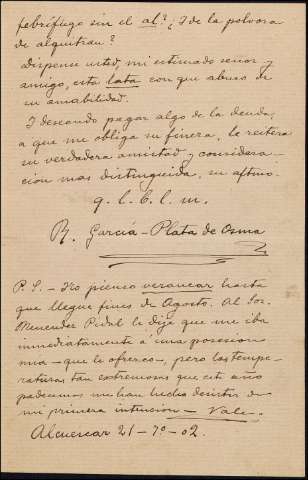 febrífugo sin el al? ¿I de la polvora
de alquitran?
Dispense usted, mi estimado señor y
amigo, esta lata con que abuso de
su amabilidad.
I deseando pagar algo de la deuda,
a que me obliga su finera, le reitera
su verdadera amistad y considera-
cion mas distinguida, su aftmo.
q. l. b. l. m.
R. García-Plata de Osma
P. S. - No pienso veranear hasta
que llegue fines de Agosto. Al Sor.
Menendez Pidal le dije que me iba
inmediatamente á una posesion
mia - que le ofrezco -, pero las tempe-
raturas tan extremosas que este año
padecemos me han hecho desistir de
mi primera intencion - Vale.
Alcuescar 21-7º-02.